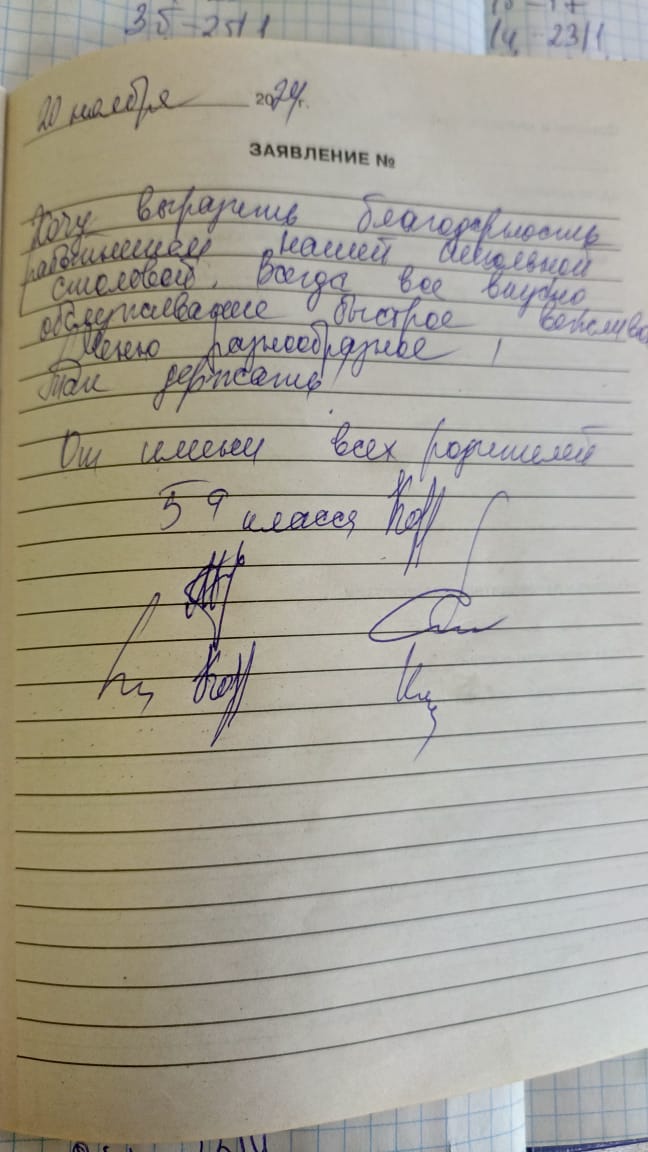 3б - 25/1
- 23/1
20 ноября 2024 г.
ЗАЯВЛЕНИЕ №
Хочу выразить благодарность
работницам нашей школьной
столовой. Всегда все вкусно
обслуживание быстрое вежливо
Меню разнообразное !
Так держать
От имени всех родителей
5 класса